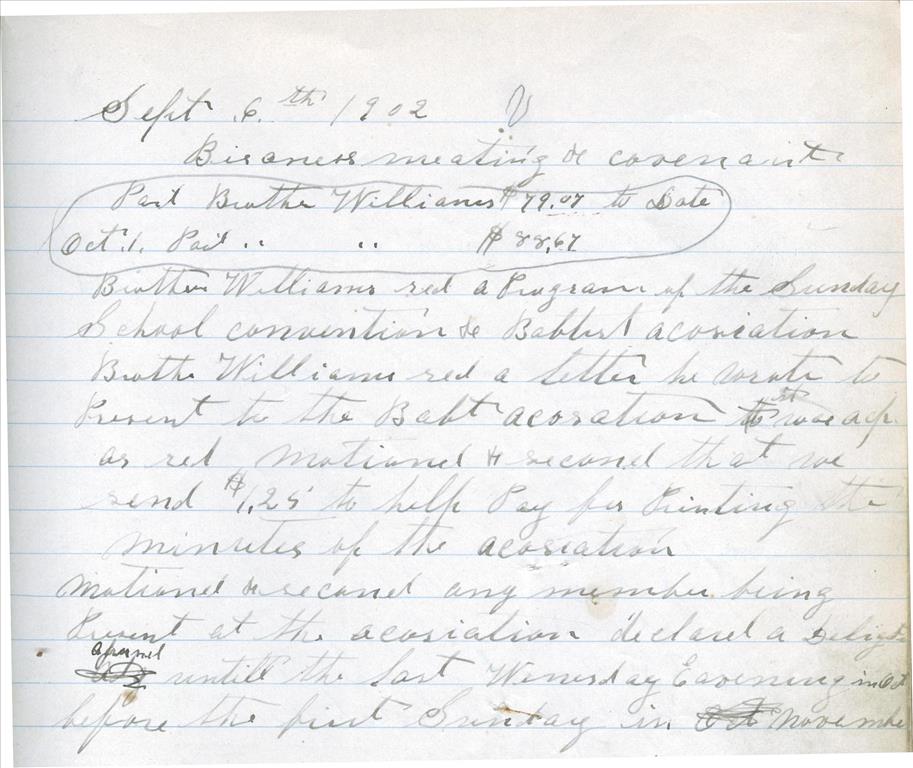 Sept. 6.th 1902
Bisaness meating & covenant
Paid Brother Williams $79.07 to Date
Oct. 1. Paid " " $88.67
Brother Williams red a Program of the Sunday
School convention & Babtist acosiation
Brothe Williams red a letter he wrote to
Present to the Babt acosation was acp.
as red motiond & second that we
send $1,25 to help Pay for Printing the
minutes of the acosiation
motiond & second any member being
Present at the acosiation declard a Deligate
untill the last Wensday Eavening in Oct
before the first Sunday in Oct November